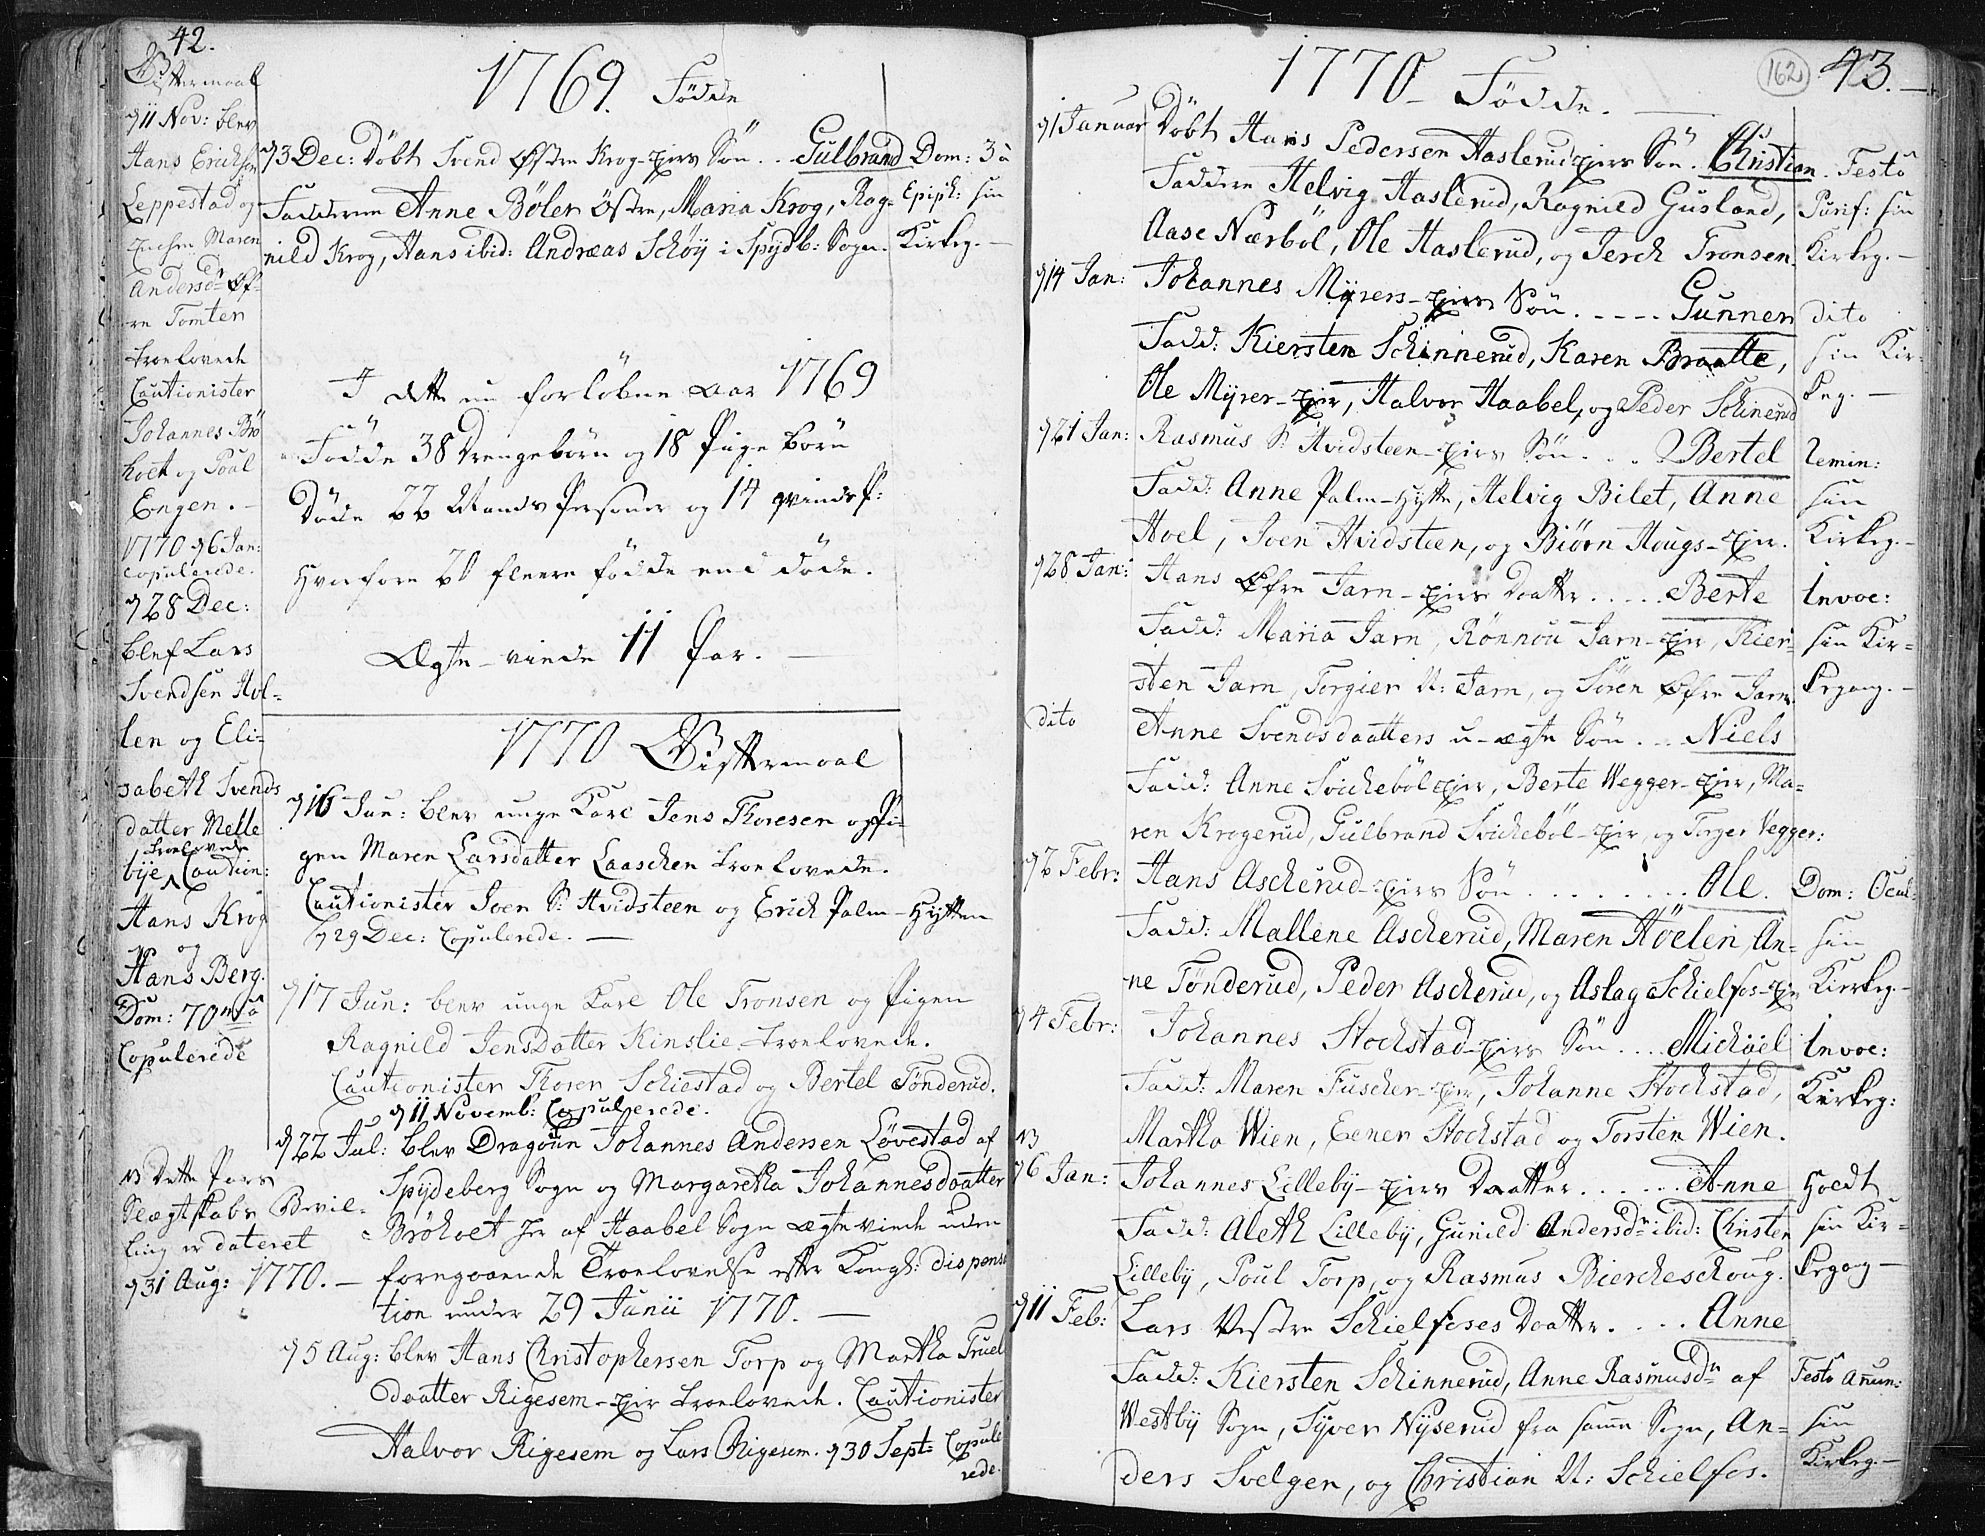 42.
Giftermaal
d 11 Nov: blev
Hans Erichsen
Leppestad og
Maren
Andersdr Øf-
re Tomter
troelovede
Cautionister
Johannes Brö
hoet og Poul
Engen. -
1770 d 6 Jan:
copulerede.
d 28 Dec:
blef Lars
Svendsen Hol-
len og Eli-
sabeth Svends
datter Melle
troelovede
bye Caution:
Hans Krog
og
Hans Berg.
Dom: 70mâ
Copulerede
NB Dette Pars
Slegtskabs Bevil-
ling er dateret
d 31 Aug: 1770. -
1769. Födde
d 3 Dec: Döbt Svend Østre Krog-eier Sön . . Gulbrand Dom: 3 â
Fadderne Anne Böler Östre, Maria Krog, Rag- Epiph: sin
nild Krog, Hans ibid: Andræas Schöÿ i Spydb: Sogn. Kirkeg. -
I dette nu forløbne Aar 1769
Födde 38 Drengebörn og 18 Pige börn
Döde 22 Mands Personer og 14 qvindsP:
Hvorfore 20 fleere födde end döde.
Ægte-viede 11 Par. -
1770 Giftermaal
d 16 Jun: blev unge Karl Jens Thoresen og Pi-
gen Maren Larsdatter Laaschen troelovede.
Cautionister Joen S: Hvidsteen og Erich Palm-Hytten
d 29 Dec: Copulerede. -
d 17 Jun: blev unge Karl Ole Tronsen og Pigen
Ragnild JensDatter Kinslie troelovede.
Cautionister Thorer Schiestad og Bertel Tönderud.
d 11 Novemb: Copulerede.
d 22 Jul: blev Dragoun Johannes Andersen Lövestad af
Spydeberg Sogn og Margaretha Johannesdaatter
Bröhoet her af Haabel Sogn ægteviede uden
foregaaende Troelovelse efter Kongl: dispensa
tion under 29 Junii 1770. -
d 5 Aug: blev Hans Christophersen Torp og Martha Truel
daatter Rigesem-eier troelovede. Cautionister
Halvor Rigesem og Lars Rigesem. d 30 Sept: Copule
rede.
1770 - Födde. 162 43. -
d 1 Januar Döbt Hans Pedersen Haslerud eiers Sön . Christian . Festô
Faddere Helvig Haslerud, Ragnild Gusland, Purif: sin
Aase Nærböl, Ole Haslerud, og Jerch Tronsen. Kirkeg. -
d 14 Jan: Johannes Myrers-eiers Sön . - - - - Gunner dito
Fadd: Kiersten Schinnerud, Karen Braatte, sin Kir-
Ole Myrer-eier, Halvor Haabel, og Peder Schinerud keg. -
d 21 Jan: Rasmus S: Hvidsteen-eiers Sön . . . Bertel Remin:
Fadd: Anne Palm-Hytte, Helvig Bilet, Anne sin
Hoel, Joen Hvidsteen, og Biörn Hougs-eier. Kirkeg. -
d 28 Jan: Hans Øfre Jarn-eiers Daatter . . . . . Berte Invoc:
Fadd: Maria Jarn, Rönnou Jarn-eier, Kier- sin Kir-
sten Jarn, Torgier N: Jarn, og Sören Øfre Jarn. kegang. -
dito Anne Svendsdaatters u-ægte Sön . . . Niels
Fadd: Anne Svicheböl eier, Berte Wegger-eier, Ma-
ren Krogerud, Gulbrand Svicheböl-eier, og Torger Vegger:
d 2 Febr: Hans Ascherud-eiers Sön . . . . . . . . Ole. Dom: Ocul:
Fadd: Mallene Ascherud, Maren Höelen, An- sin
ne Tönderud, Peder Ascherud, og Aslag Schielfos-eier Kirkeg. -
d 4 Febr: Johannes Stochstad-eiers Sön . . . . Michäel Invoc:
Fadd: Maren Fuscher-eier, Johanne Stochstad, Kirkeg:
NB Martha Wien, Eener Stochstad og Torsten Wien.
d 6 Jan: Johannes Lilleby-eiers Daatter . . . . . . Anne Holdt
Fadd: Aleth Lilleby, Gunild Andersdr ibid: Christen sin Kir-
Lilleby, Poul Torp, og Rasmus Biercheschoug. kegag -
d 11 Feb: Lars Vestre Schielfoses Daatter . . . . Anne
Fadd: Kiersten Schinnerud, Anne Rasmusdr af Festô Anun:
Westby Sogn, Syver Nyserud fra samme Sogn, An- sin
ders Svelgen, og Christian N: Schielfos. Kirkeg. -